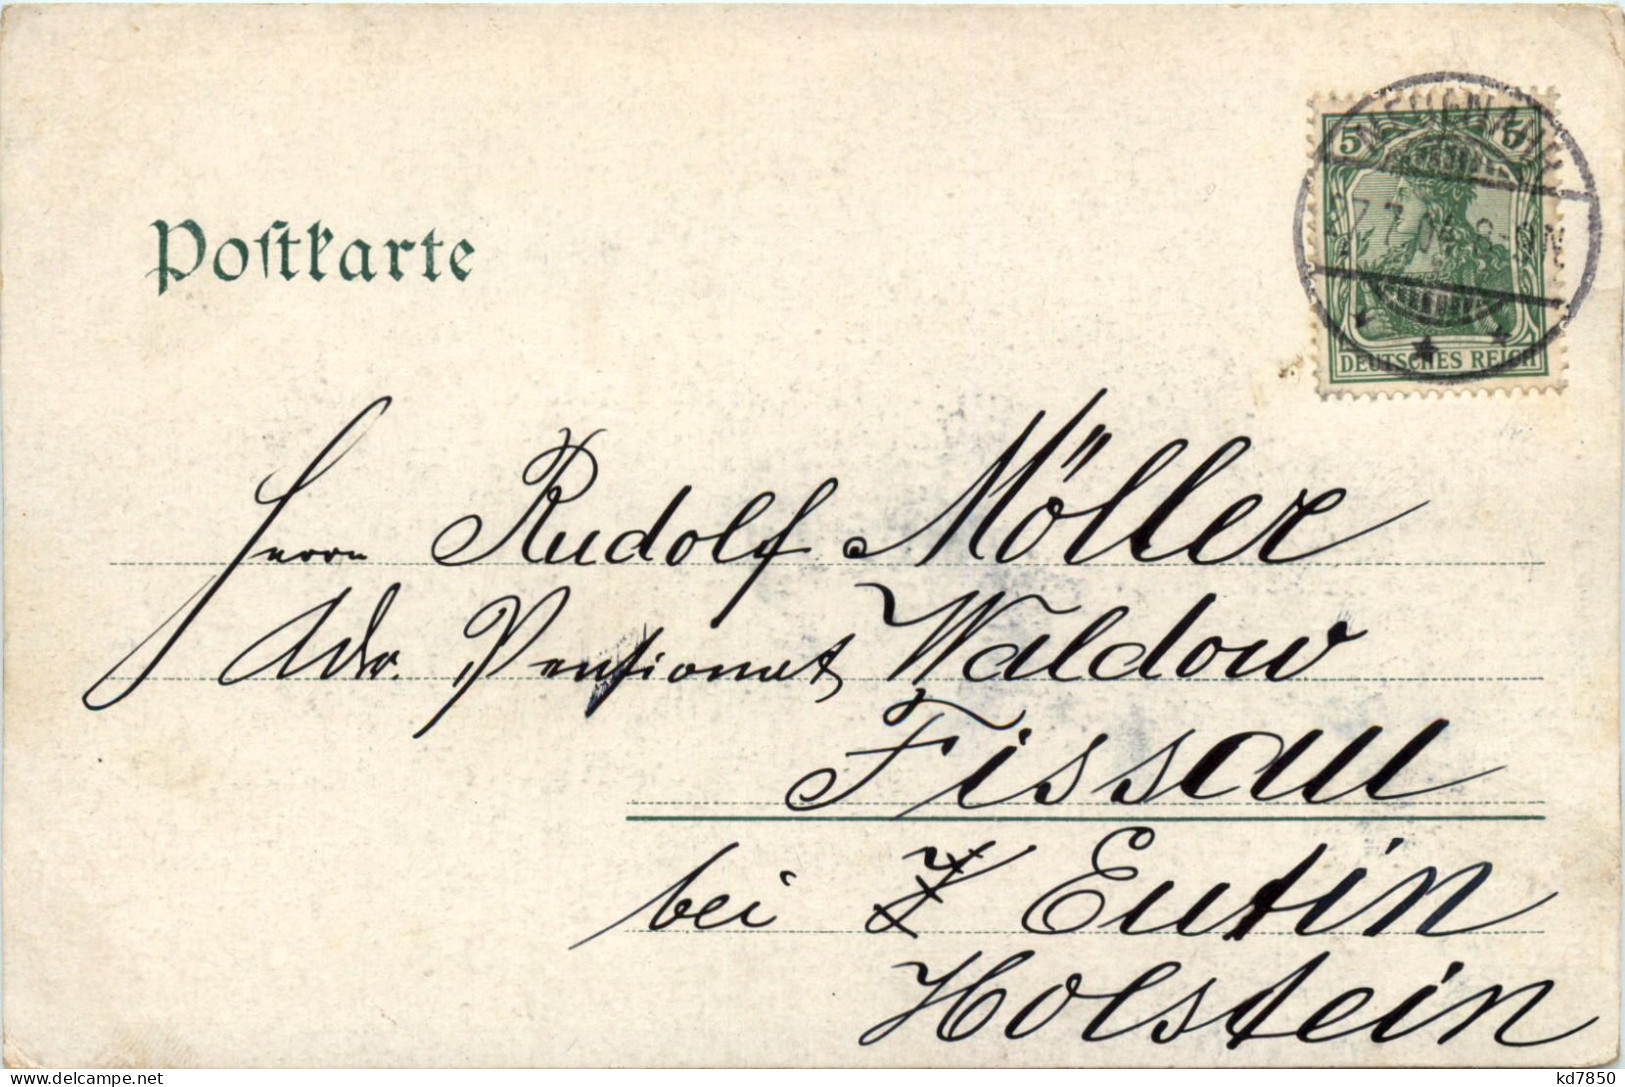 Postkarte
5 5
7.7.04. 8-9N
DEUTSCHES REICH
Herrn Rudolf Möller
Adr. Pensionat Waldow
Fissau
bei Eutin
Holstein
delcampe.net
kd7850